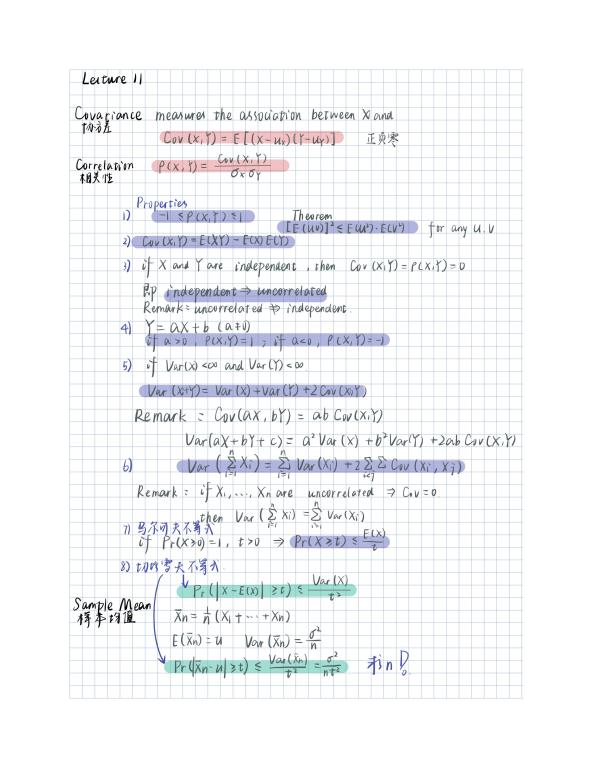 Lecture 11
Covariance measures the association between X and
协方差
Cov(X,Y) = E[(X-μx)(Y-μY)] 正负零
Correlation ρ(X,Y) = Cov(X,Y) / σxσY
相关性
Properties
1) -1 ≤ ρ(X,Y) ≤ 1 Theorem
[E(UV)]² ≤ E(U²)·E(V²) for any U.V
2) Cov(X,Y) = E(XY) - E(X)E(Y)
3) if X and Y are independent, then Cov(X,Y) = ρ(X,Y) = 0
即 independent ⇒ uncorrelated
Remark: uncorrelated ⇏ independent.
4) Y = aX + b (a≠0)
if a>0, ρ(X,Y)=1 ; if a<0, ρ(X,Y)=-1
5) if Var(X)<∞ and Var(Y)<∞
Var(X+Y) = Var(X) + Var(Y) + 2Cov(X,Y)
Remark: Cov(aX, bY) = ab Cov(X,Y)
Var(aX + bY + c) = a² Var(X) + b² Var(Y) + 2ab Cov(X,Y)
6) Var(∑ⁿᵢ₌₁ Xi) = ∑ⁿᵢ₌₁ Var(Xi) + 2∑∑i<j Cov(Xi, Xj)
Remark: if X1,..., Xn are uncorrelated ⇒ Cov=0
then Var(∑ⁿᵢ₌₁ Xi) = ∑ⁿᵢ₌₁ Var(Xi)
7) 马尔可夫不等式
if Pr(X≥0)=1, t>0 ⇒ Pr(X≥t) ≤ E(X)/t
8) 切比雪夫不等式.
Pr(|X-E(X)| ≥t) ≤ Var(X)/t²
Sample Mean X̄n = 1/n (X1 + ··· + Xn)
样本均值
E(X̄n) = μ Var(X̄n) = σ²/n
Pr(|X̄n-μ| ≥t) ≤ Var(X̄n)/t² = σ²/nt² 求n!